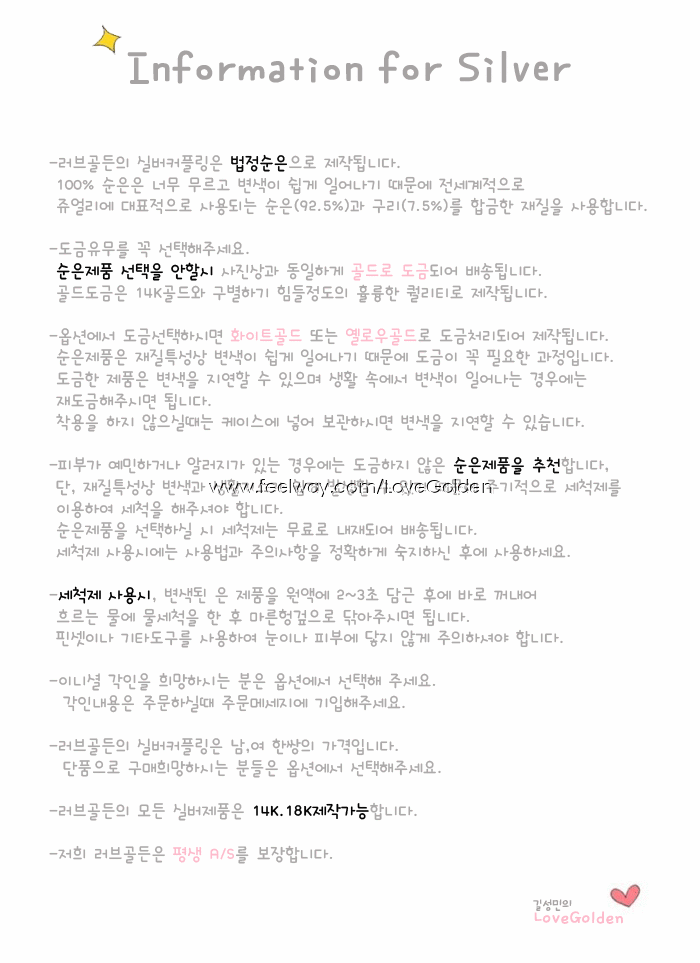 Information for Silver
-러브골든의 실버커플링은 법정순은으로 제작됩니다.
100% 순은은 너무 무르고 변색이 쉽게 일어나기 때문에 전세계적으로
쥬얼리에 대표적으로 사용되는 순은(92.5%)과 구리(7.5%)를 합금한 재질을 사용합니다.
-도금유무를 꼭 선택해주세요.
순은제품 선택을 안할시 사진상과 동일하게 골드로 도금되어 배송됩니다.
골드도금은 14K골드와 구별하기 힘들정도의 휼륭한 퀄리티로 제작됩니다.
-옵션에서 도금선택하시면 화이트골드 또는 옐로우골드로 도금처리되어 제작됩니다.
순은제품은 재질특성상 변색이 쉽게 일어나기 때문에 도금이 꼭 필요한 과정입니다.
도금한 제품은 변색을 지연할 수 있으며 생활 속에서 변색이 일어나는 경우에는
재도금해주시면 됩니다.
착용을 하지 않으실때는 케이스에 넣어 보관하시면 변색을 지연할 수 있습니다.
-피부가 예민하거나 알러지가 있는 경우에는 도금하지 않은 순은제품을 추천합니다,
단, 재질특성상 변색과 주기적으로 세척제를
www.feelway.com/LoveGolden
이용하여 세척을 해주셔야 합니다.
순은제품을 선택하실 시 세척제는 무료로 내재되어 배송됩니다.
세척제 사용시에는 사용법과 주의사항을 정확하게 숙지하신 후에 사용하세요.
-세척제 사용시, 변색된 은 제품을 원액에 2~3초 담근 후에 바로 꺼내어
흐르는 물에 물세척을 한 후 마른헝겊으로 닦아주시면 됩니다.
핀셋이나 기타도구를 사용하여 눈이나 피부에 닿지 않게 주의하셔야 합니다.
-이니셜 각인을 희망하시는 분은 옵션에서 선택해 주세요.
각인내용은 주문하실때 주문메세지에 기입해주세요.
-러브골든의 실버커플링은 남,여 한쌍의 가격입니다.
단품으로 구매희망하시는 분들은 옵션에서 선택해주세요.
-러브골든의 모든 실버제품은 14K.18K제작가능합니다.
-저희 러브골든은 평생 A/S를 보장합니다.
김성민의
LoveGolden